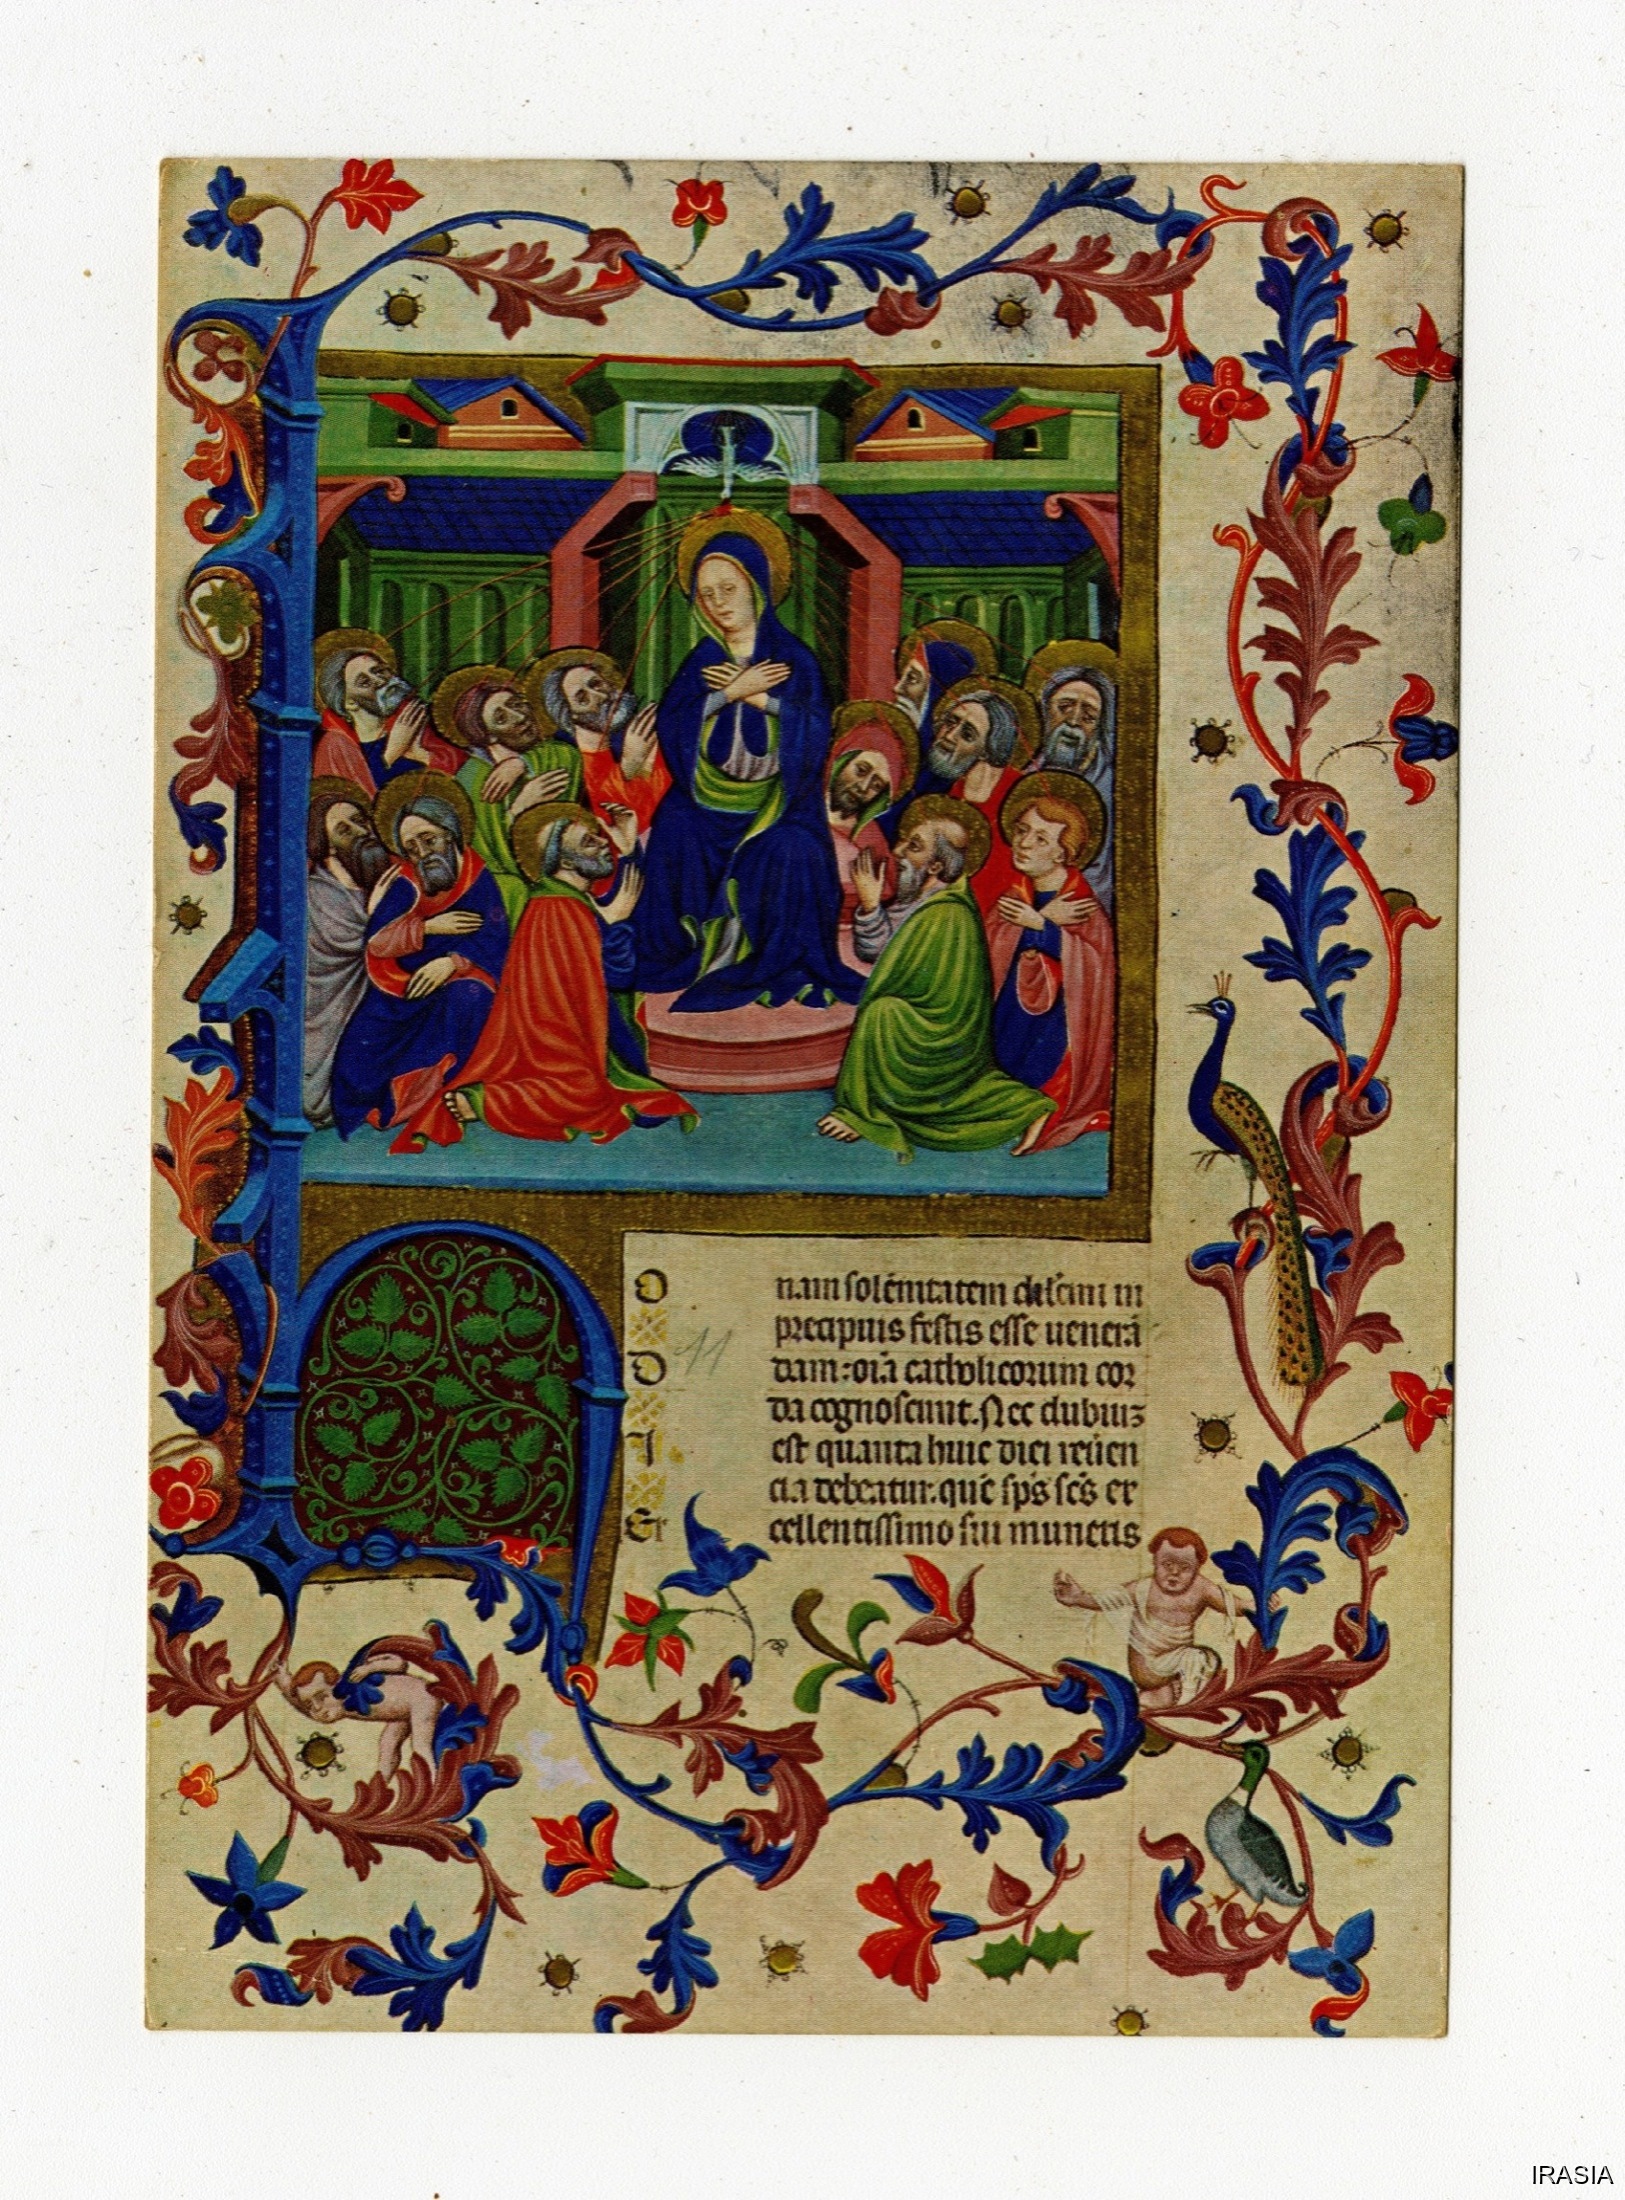 O nam solēnitatem dilcīmi in
precipuis festis esse uenerā
D 11 dam:oīa catholicorum cor
da cognoscunt. Nec dubiuȝ
I est quanta huic diei reūen
cia debeatur.quē sp̄s sc̄s ex
Er cellentissimo sui muneris
IRASIA